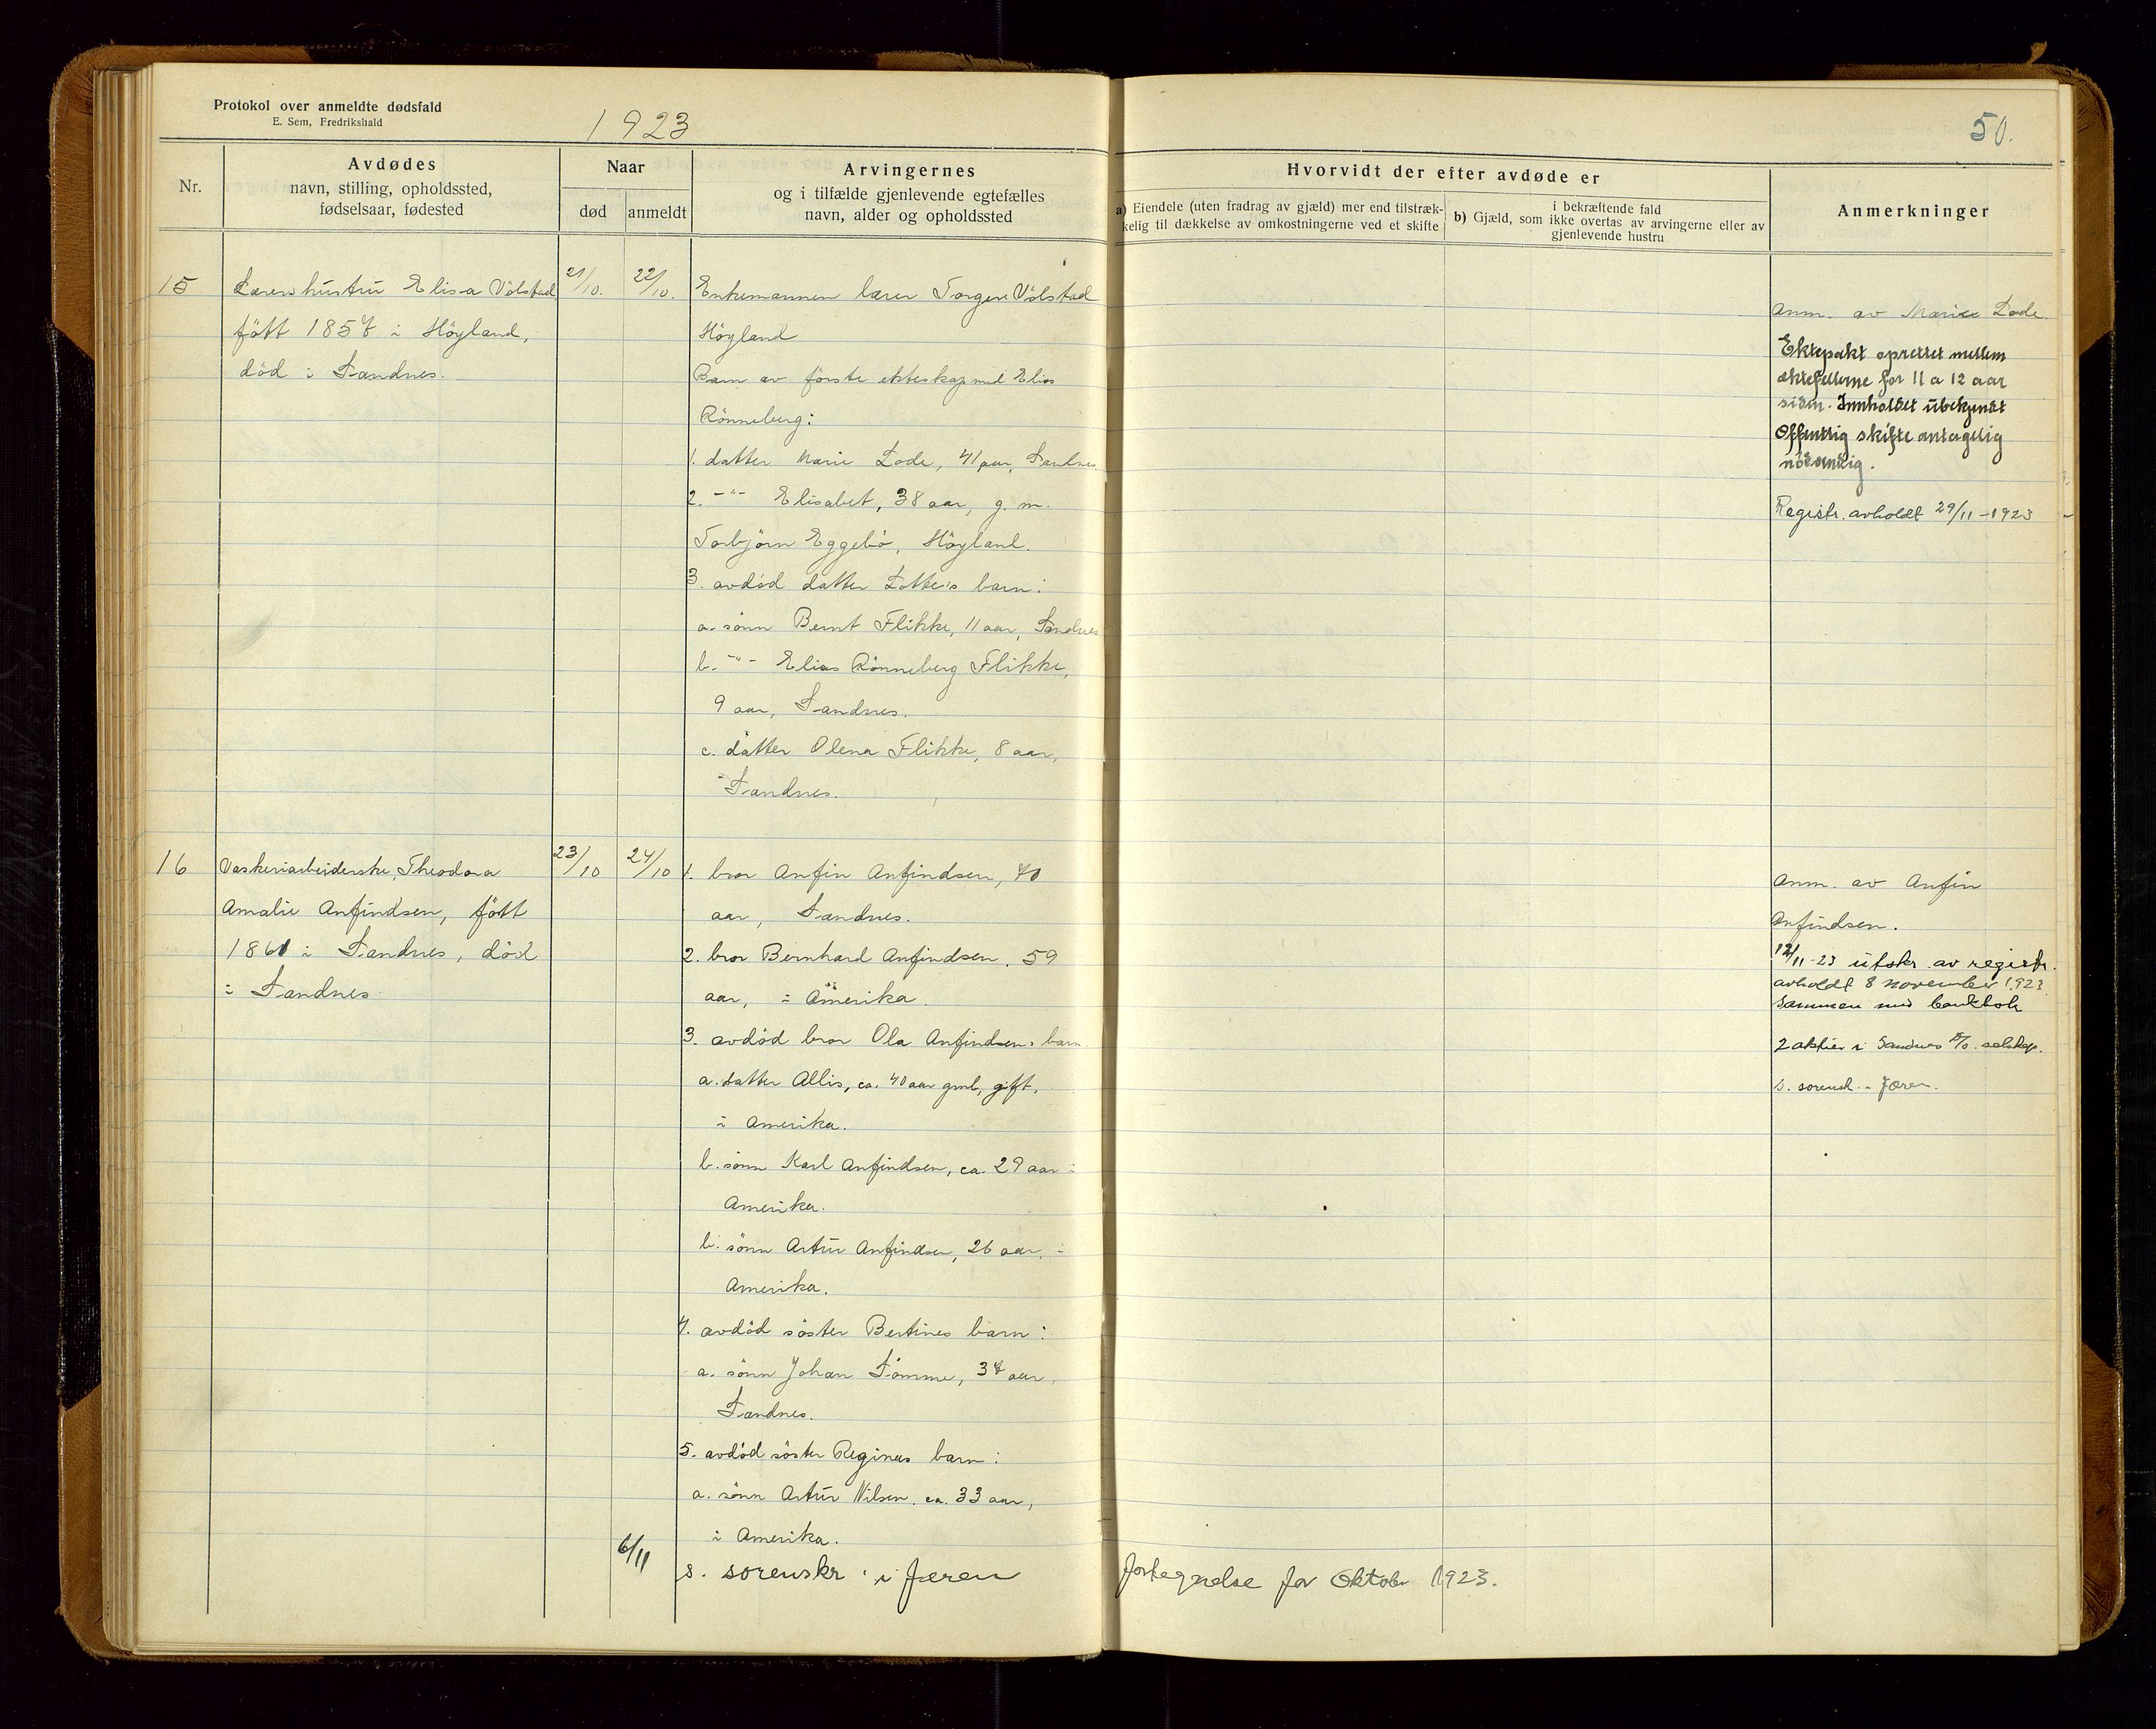 Protokol over anmeldte dødsfald
E. Sem, Fredrikshald
1923
50.
Nr.
Avdødes
navn, stilling, opholdssted,
fødselsaar, fødested
Naar
død
anmeldt
Arvingernes
og i tilfælde gjenlevende egtefælles
navn, alder og opholdssted
Hvorvidt der efter avdøde er
a) Eiendele (uten fradrag av gjæld) mer end tilstræk-
kelig til dækkelse av omkostningerne ved et skifte
i bekræftende fald
b) Gjæld, som ikke overtas av arvingerne eller av
gjenlevende hustru
Anmerkninger
15
Lærers hustru Elisa Völstad
född 1857 i Höyland,
död i Sandnes.
21/10.
22/10.
Enkemannen lærer Torger Völstad
Höyland
Barn av förste ekteskap med Elias
Rönneberg:
1. datter Marie Lode, 41 aar, Sandnes
2. -"- Elisabet, 38 aar, g. m.
Torbjörn Eggebö, Höyland.
3. avdöd datter Lotte's barn:
a. sönn Bernt Flikke, 11 aar, Sandnes
b. -"- Elias Rönneberg Flikke,
9 aar, Sandnes.
c. datter Olena Flikke, 8 aar,
Sandnes.
Anm. av Marie Lode.
Ektepakt oprettet mellem
ektefellerne for 11 a 12 aar
siden. Innholdet ubekjendt
Offentlig skifte antagelig
nödvendig.
Registr. avholdt 29/11-1923
16
Vaskeriarbeiderske, Theodora
Amalie Anfindsen, född
1861 i Sandnes, död
i Sandnes
23/10
24/10
1. bror Anfin Anfindsen, 70
aar, Sandnes.
2. bror Bernhard Anfindsen, 59
aar, i Amerika.
3. avdöd bror Ola Anfindsens barn
a. datter Allis, ca. 40 aar gml, gift,
i Amerika.
b. sönn Karl Anfindsen, ca. 29 aar i
Amerika.
b. sönn Artur Anfindsen, 26 aar, i
Amerika.
4. avdöd söster Bertines barn:
a. sönn Johan Sömme, 37 aar,
Sandnes.
5. avdöd söster Reginas barn:
a. sönn Artur Nilsen, ca. 33 aar,
i Amerika.
Anm. av Anfin
Anfindsen.
12/11-23 utskr. av registr.
avholdt 8 november 1923
sammen med bankbok
2 aktier i Sandnes selskap.
s. sorensk. i Jæren.
6/11
s. sorenskr i Jæren fortegnelse for Oktober 1923.